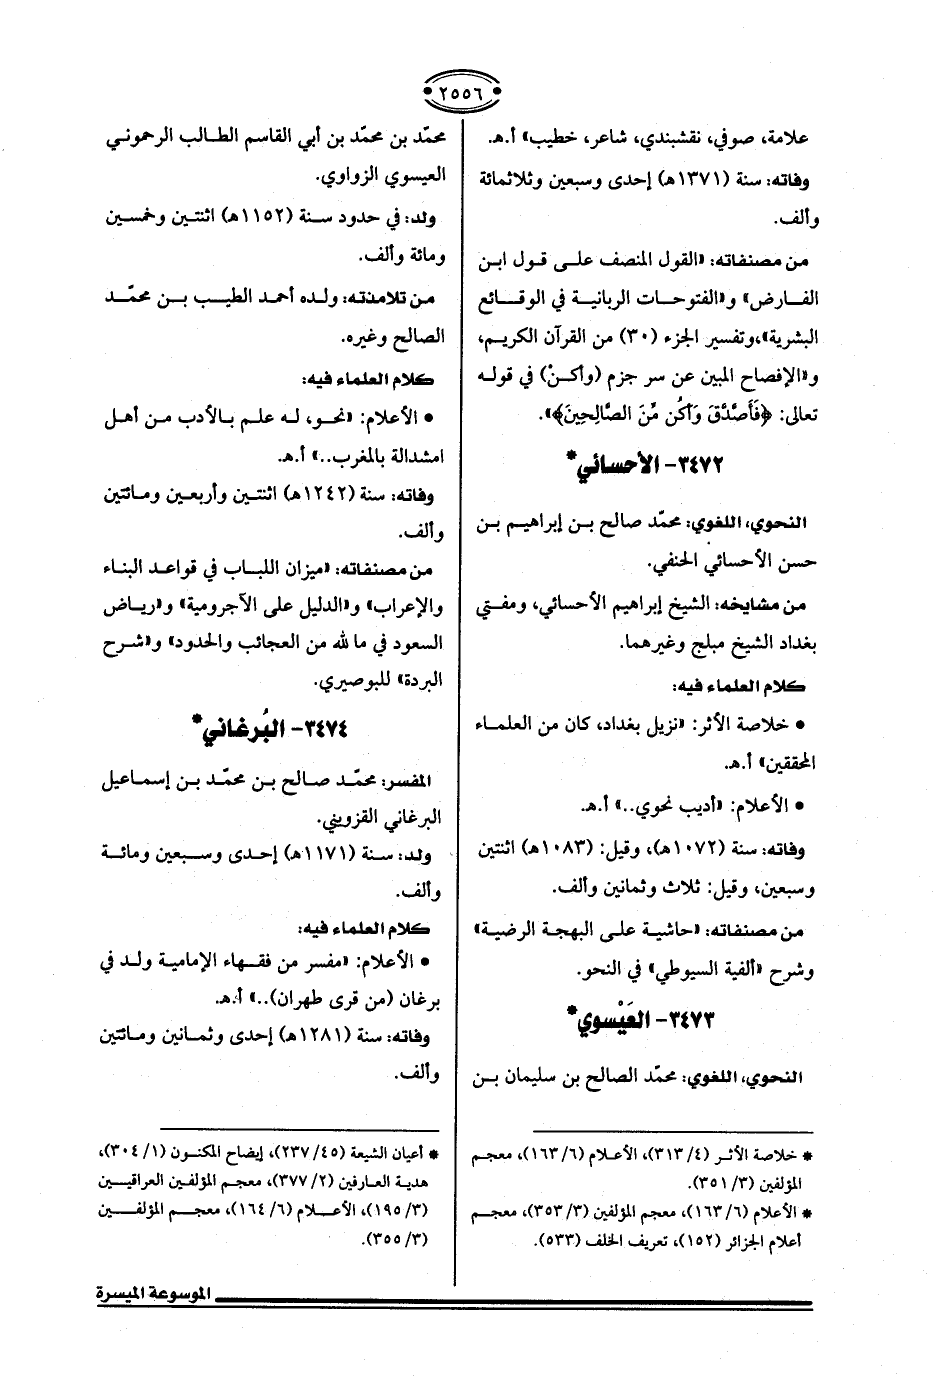 ٢٥٥٦
علامة، صوفي، نقشبندي، شاعر، خطيب» أ.هـ.
وفاته: سنة (١٣٧١هـ) إحدى وسبعين وثلاثمائة
وألف.
من مصنفاته: «القول المنصف على قول ابن
الفارض» و«الفتوحات الربانية في الوقائع
البشرية»،وتفسير الجزء (٣٠) من القرآن الكريم،
و«الإفصاح المبين عن سر جزم (وأكنْ) في قوله
تعالى: ﴿فَأَصَّدَّقَ وَأَكُن مِّنَ الصَّالِحِينَ﴾».
٣٤٧٢- الأحسائي*
النحوي، اللغوي: محمّد صالح بن إبراهيم بن
حسن الأحسائي الحنفي.
من مشايخه: الشيخ إبراهيم الأحسائي، ومفتي
بغداد الشيخ مبلج وغيرهما.
كلام العلماء فيه:
• خلاصة الأثر: «نزيل بغداد، كان من العلماء
المحققين» أ.هـ.
• الأعلام: «أديب نحوي..» أ.هـ.
وفاته: سنة (١٠٧٢هـ)، وقيل: (١٠٨٣هـ) اثنتين
وسبعين، وقيل: ثلاث وثمانين وألف.
من مصنفاته: «حاشية على البهجة الرضية»
وشرح «ألفية السيوطي» في النحو.
٣٤٧٣- العَيْسوي*
النحوي، اللغوي: محمّد الصالح بن سليمان بن
* خلاصة الأثر (٤/ ٣١٣)، الأعلام (٦/ ١٦٣)، معجم
المؤلفين (٣/ ٣٥١).
* الأعلام (٦/ ١٦٣)، معجم المؤلفين (٣/ ٣٥٣)، معجم
أعلام الجزائر (١٥٢)، تعريف الخلف (٥٣٣).
محمّد بن محمّد بن أبي القاسم الطالب الرحموني
العيسوي الزواوي.
ولد: في حدود سنة (١١٥٢هـ) اثنتين وخمسين
ومائة وألف.
من تلامذته: ولده أحمد الطيب بن محمّد
الصالح وغيره.
كلام العلماء فيه:
• الأعلام: «نحو، له علم بالأدب من أهل
امشدالة بالمغرب..» أ.هـ.
وفاته: سنة (١٢٤٢هـ) اثنتين وأربعين ومائتين
وألف.
من مصنفاته: «ميزان اللباب في قواعد البناء
والإعراب» و«الدليل على الآجرومية» و«رياض
السعود في ما لله من العجائب والحدود» و«شرح
البردة» للبوصيري.
٣٤٧٤- البُرغاني*
المفسر: محمّد صالح بن محمّد بن إسماعيل
البرغاني القزويني.
ولد: سنة (١١٧١هـ) إحدى وسبعين ومائة
وألف.
كلام العلماء فيه:
• الأعلام: «مفسر من فقهاء الإمامية ولد في
برغان (من قرى طهران)..» أ.هـ.
وفاته: سنة (١٢٨١هـ) إحدى وثمانين ومائتين
وألف.
* أعيان الشيعة (٤٥/ ٢٣٧)، إيضاح المكنون (١/ ٣٠٤)،
هدية العارفين (٢/ ٣٧٧)، معجم المؤلفين العراقيين
(٣/ ١٩٥)، الأعلام (٦/ ١٦٤)، معجم المؤلفين
(٣/ ٣٥٥).
الموسوعة الميسرة